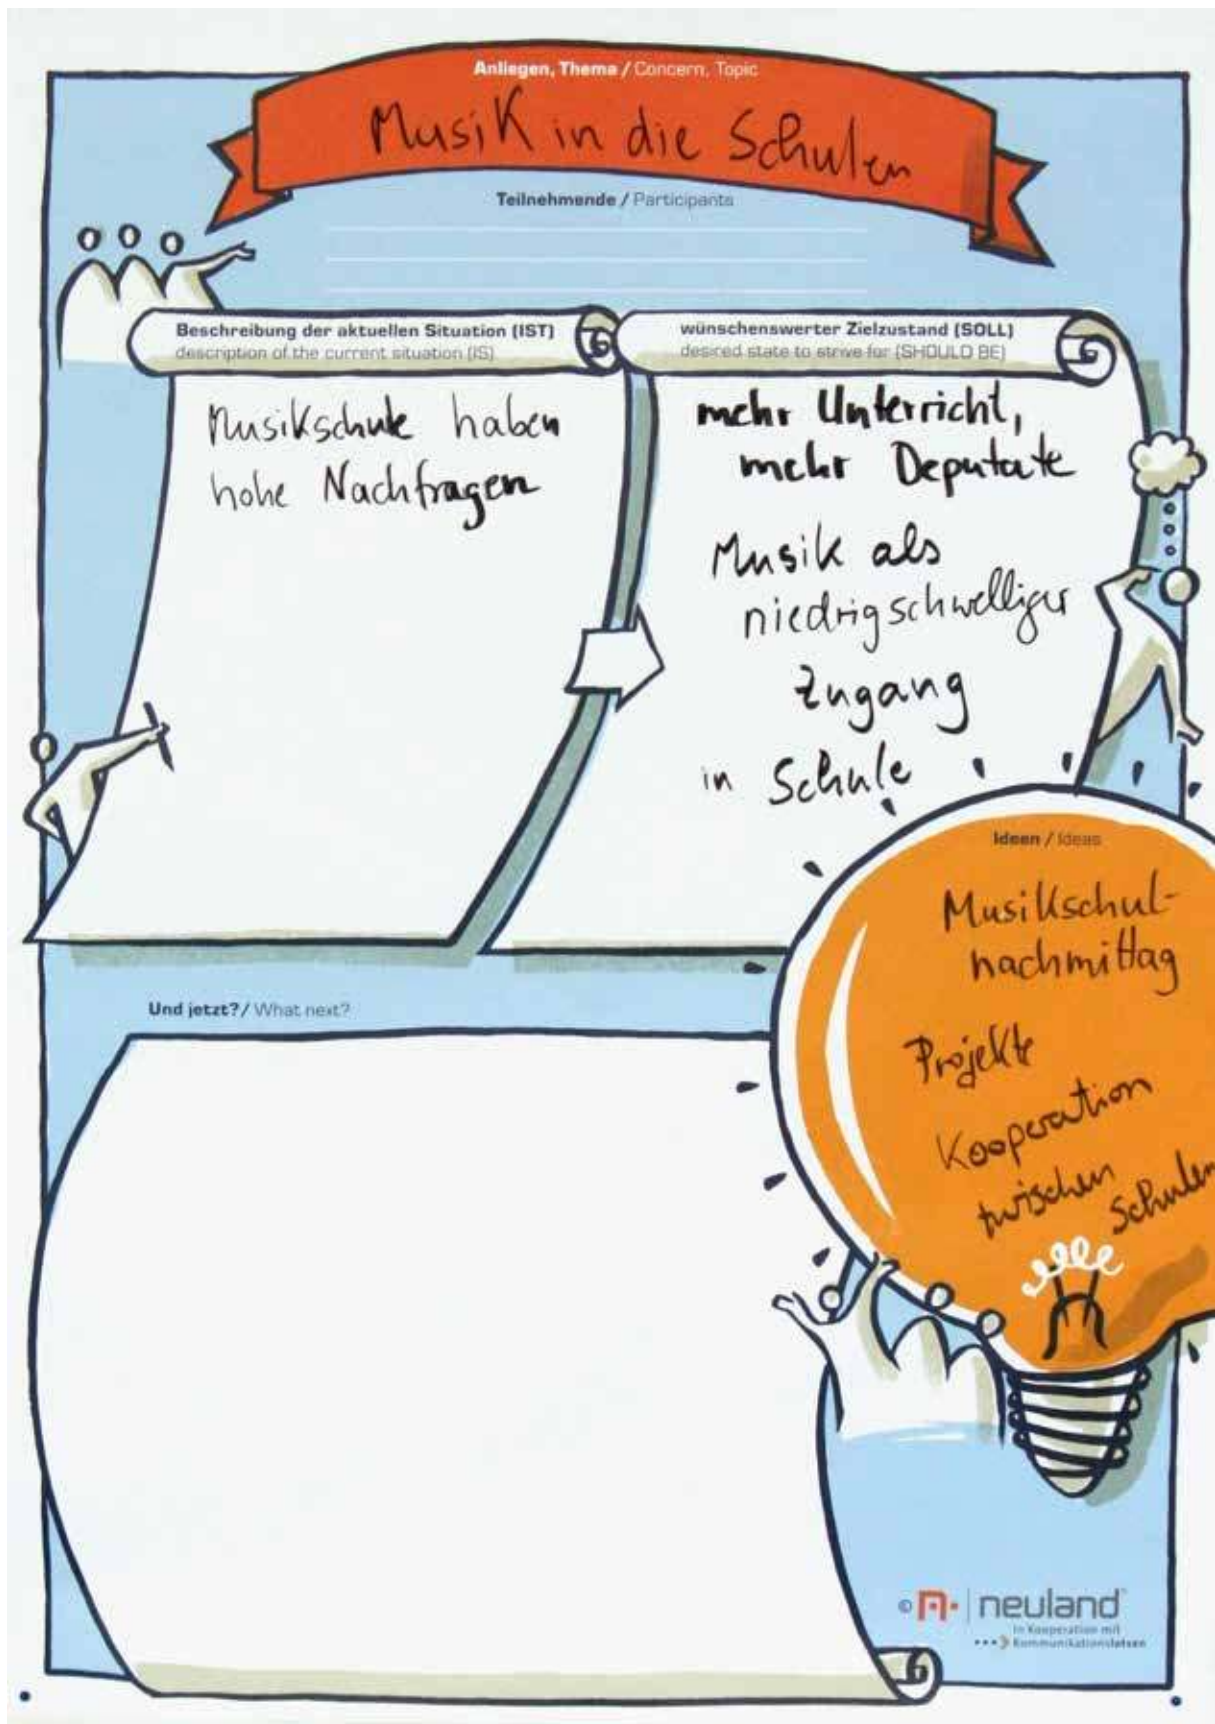 Anliegen, Thema / Concern, Topic
Musik in die Schulen
Teilnehmende / Participants
Beschreibung der aktuellen Situation (IST)
description of the current situation (IS)
Musikschule haben
hohe Nachfragen
wünschenswerter Zielzustand (SOLL)
desired state to strive for (SHOULD BE)
mehr Unterricht,
mehr Deputate
Musik als
niedrigschwelliger
Zugang
in Schule
Ideen / Ideas
Musikschul-
nachmittag
Projekte
Kooperation
zwischen
Schulen
Und jetzt? / What next?
© neuland
in Kooperation mit
Kommunikationslotsen